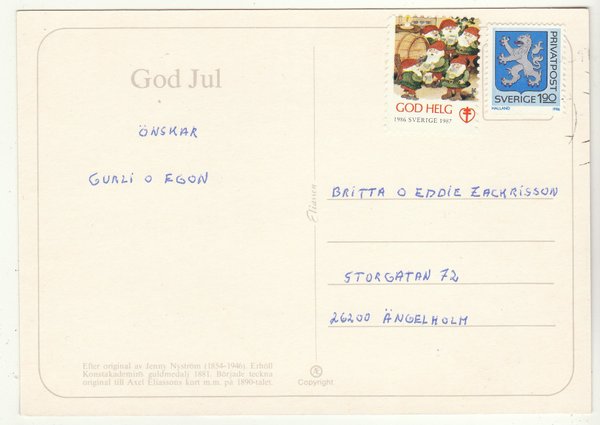 God Jul
ÖNSKAR
GURLI O EGON
Efter original av Jenny Nyström (1854–1946). Erhöll
Konstakademins guldmedalj 1881. Började teckna
original till Axel Eliassons kort m.m. på 1890-talet.
Eliasson
Æ
Copyright
GOD HELG
1986 SVERIGE 1987
PRIVATPOST
SVERIGE 190
HALLAND 1986
BRITTA O EDDIE ZACKRISSON
STORGATAN 72
26200 ÄNGELHOLM